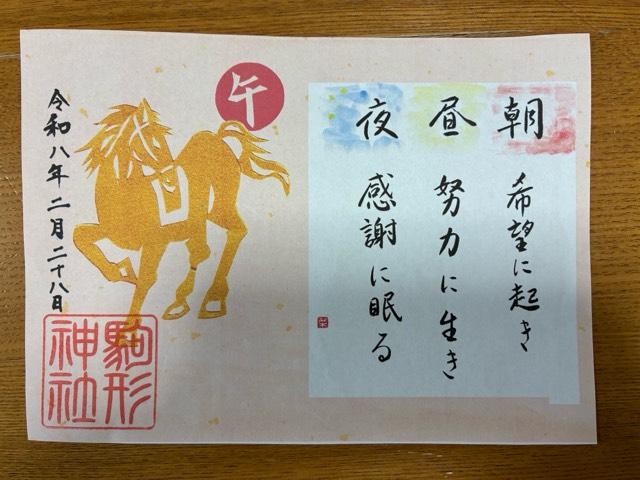 朝 希望に起き
昼 努力に生き
夜 感謝に眠る
午
令和八年二月二十八日
駒形
神社